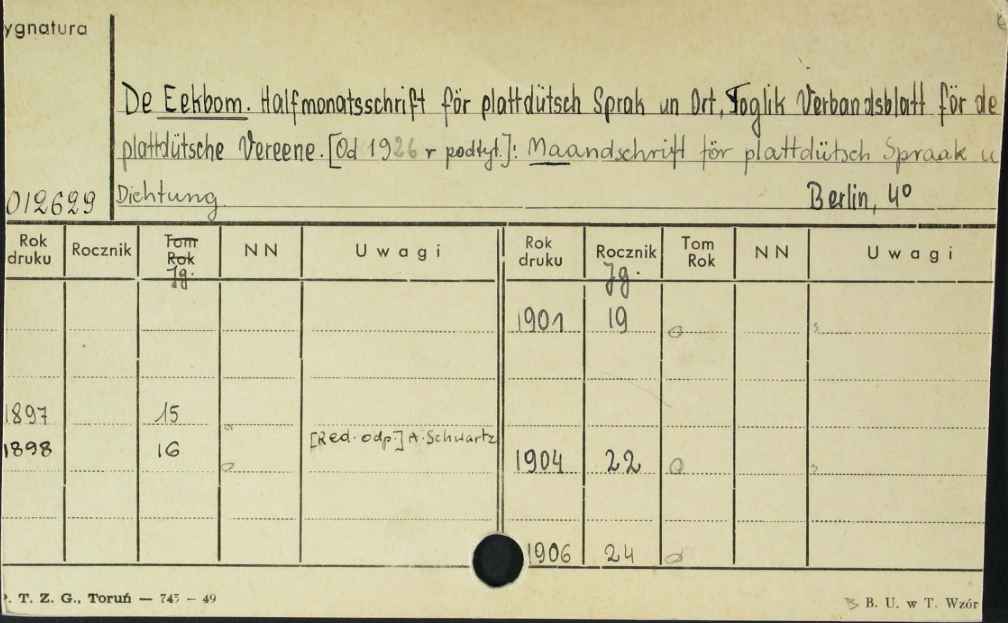 ygnatura
De Eekbom. Halfmonatsschrift för plattdütsch Sprak un Ort, Toglik Verbandsblatt för de
plattdütsche Vereene. [Od 1926 r podtyt.]: Maandschrift för plattdütsch Spraak u
012629 Dichtung Berlin, 4º
Rok druku Rocznik Tom Rok Jg. NN Uwagi Rok druku Rocznik Jg. Tom Rok NN Uwagi
1901 19
1897 15
1898 16 [Red. odp.] A. Schwartz
1904 22
1906 24
. T. Z. G., Toruń — 745 – 49 B. U. w T. Wzór